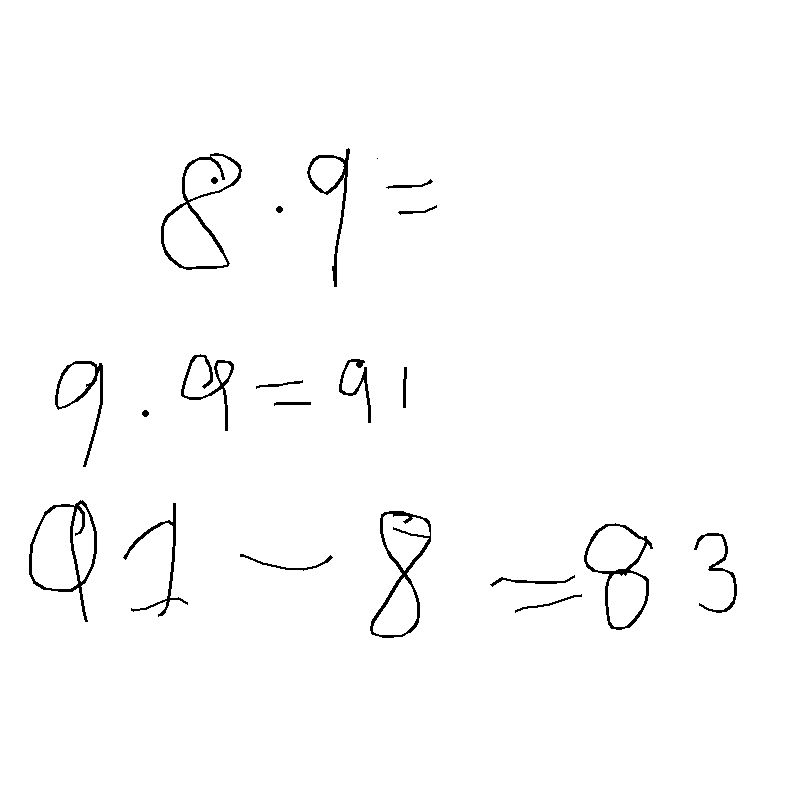 8 . 9 =
9 . 9 = 91
91 - 8 = 83